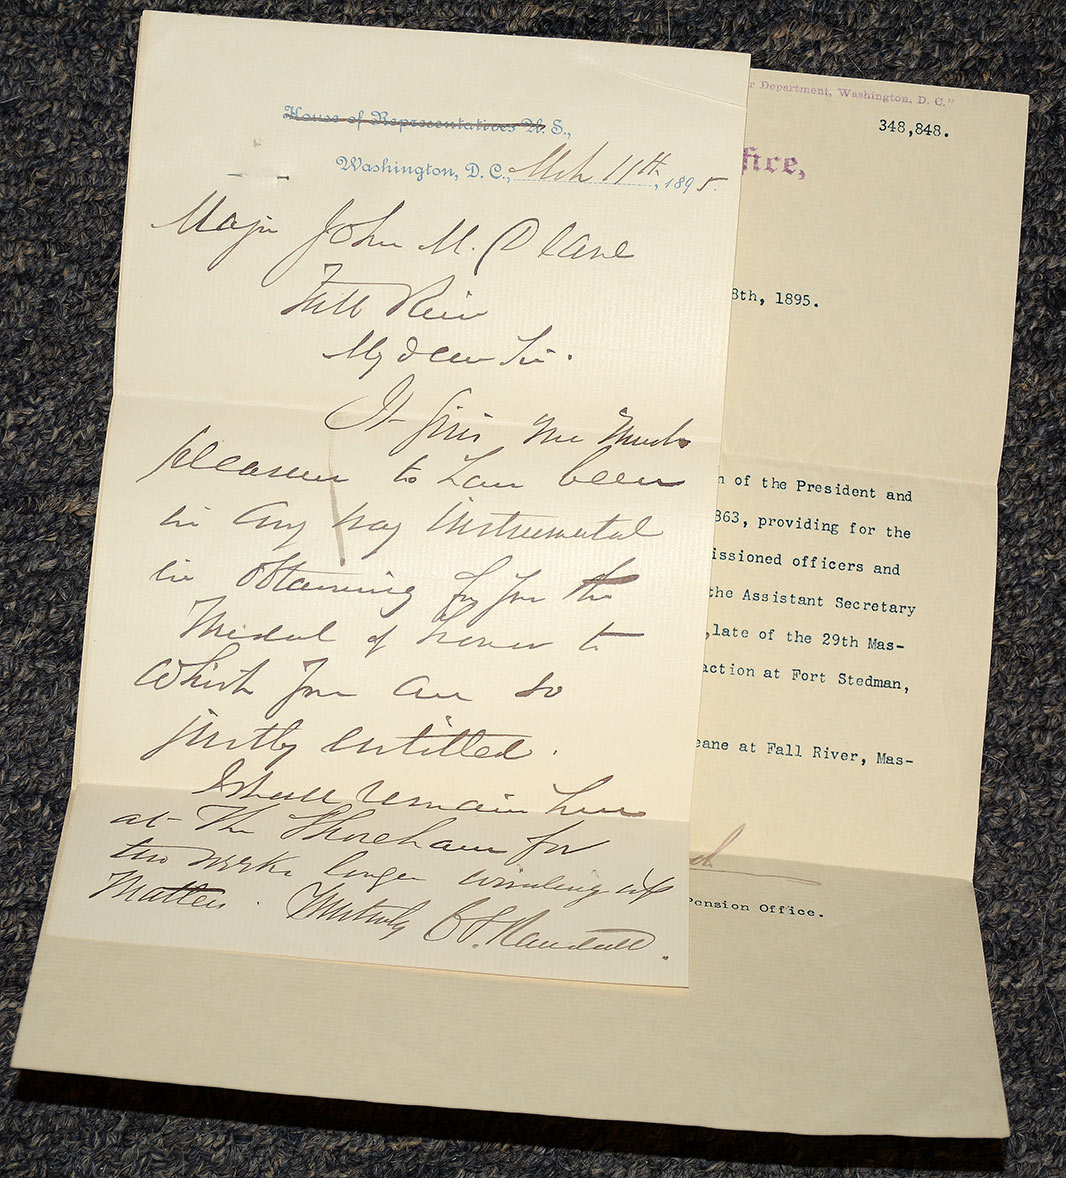 House of Representatives U. S.,
Washington, D. C., Mch 11th, 1895.
Major John M. Deane
Fall River
My dear Sir.
It gives me much
pleasure to have been
in any way instrumental
in obtaining for you the
Medal of honor to
which you are so
justly entitled.
I shall remain here
at The Shoreham for
two weeks longer winding up
matters. Truly C S. Randall.
r Department, Washington, D. C."
348,848.
ffice,
8th, 1895.
n of the President and
863, providing for the
issioned officers and
the Assistant Secretary
,late of the 29th Mas-
action at Fort Stedman,
eane at Fall River, Mas-
Pension Office.